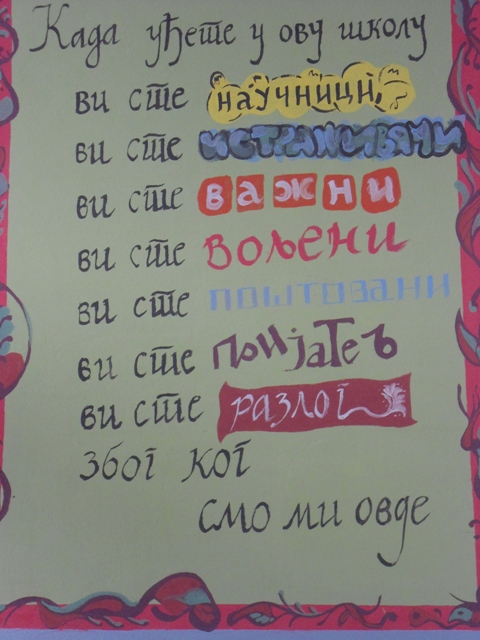 Када уђете у ову школу
ви сте научници,
ви сте истраживачи
ви сте важни
ви сте вољени
ви сте поштовани
ви сте пријатељ
ви сте разлог
због ког
смо ми овде